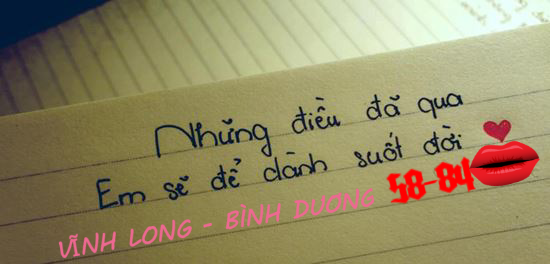 Những điều đã qua
Em sẽ để dành suốt đời
VĨNH LONG - BÌNH DƯƠNG 58-84